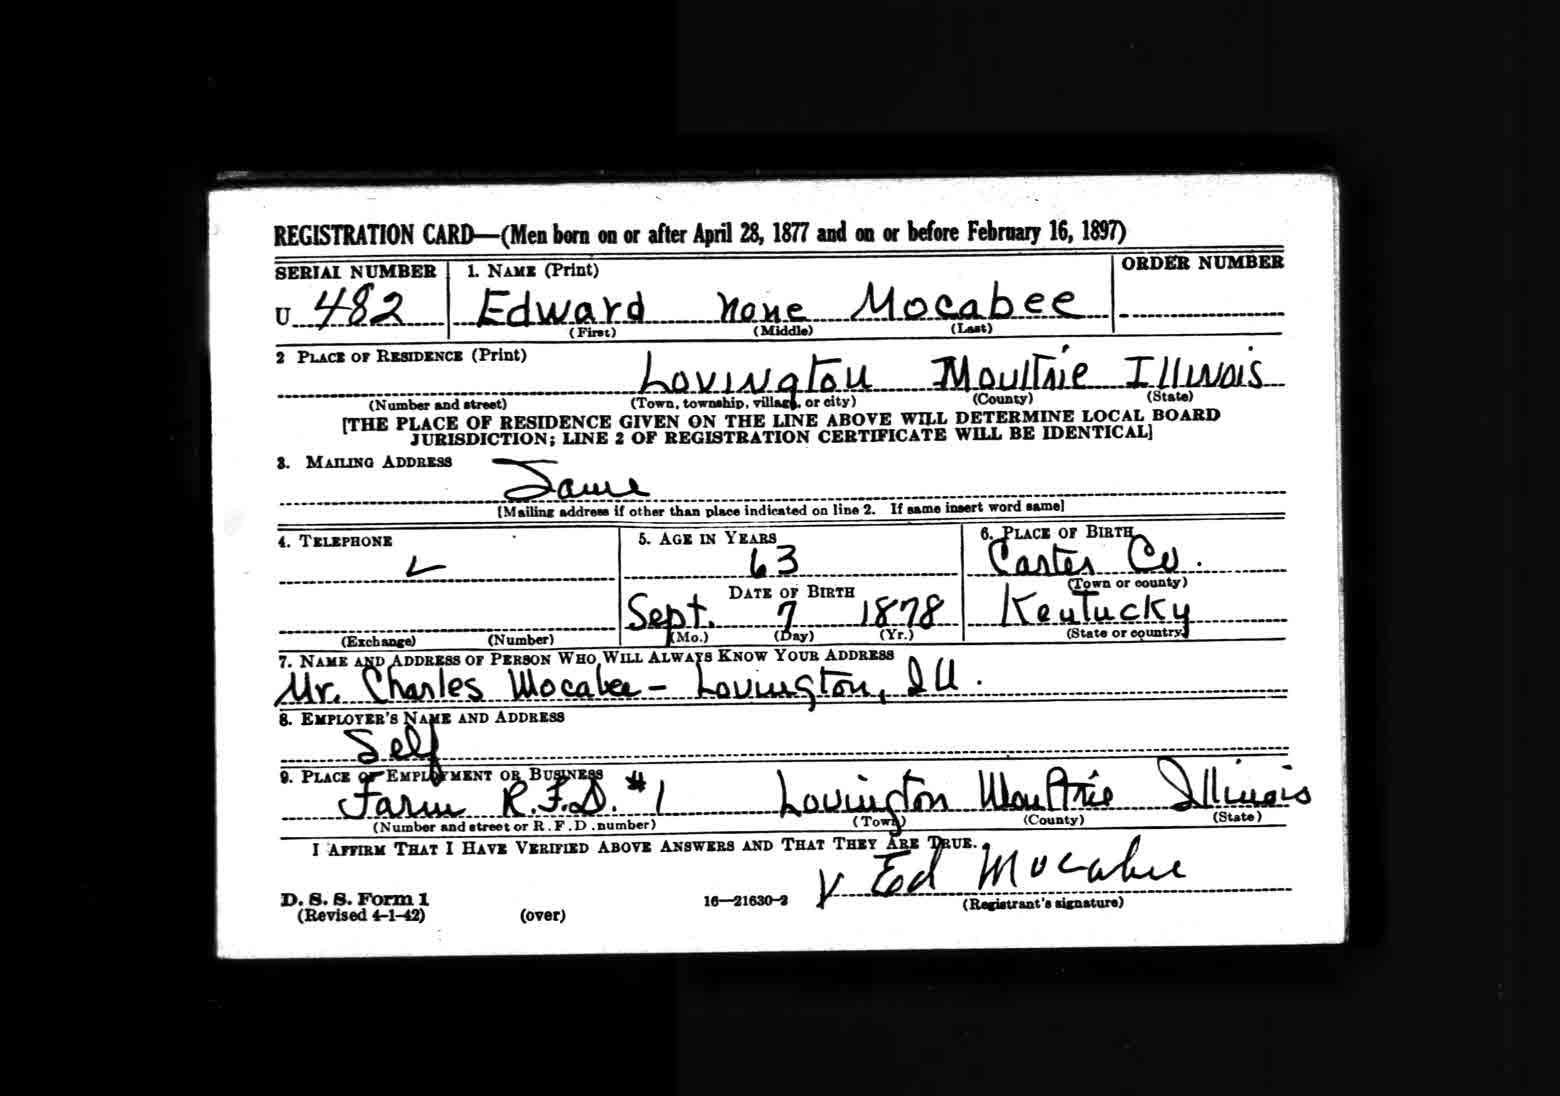 REGISTRATION CARD—(Men born on or after April 28, 1877 and on or before February 16, 1897)
SERIAL NUMBER 1. NAME (Print) ORDER NUMBER
U 482 Edward none Mocabee
(First) (Middle) (Last)
2 PLACE OF RESIDENCE (Print)
Lovington Moultrie Illinois
(Number and street) (Town, township, village, or city) (County) (State)
[THE PLACE OF RESIDENCE GIVEN ON THE LINE ABOVE WILL DETERMINE LOCAL BOARD
JURISDICTION; LINE 2 OF REGISTRATION CERTIFICATE WILL BE IDENTICAL]
3. MAILING ADDRESS
Same
[Mailing address if other than place indicated on line 2. If same insert word same]
4. TELEPHONE 5. AGE IN YEARS 6. PLACE OF BIRTH
63 Carter Co.
DATE OF BIRTH (Town or county)
Sept. 7 1878 Kentucky
(Exchange) (Number) (Mo.) (Day) (Yr.) (State or country)
7. NAME AND ADDRESS OF PERSON WHO WILL ALWAYS KNOW YOUR ADDRESS
Mr. Charles Mocabee - Lovington, Ill.
8. EMPLOYER'S NAME AND ADDRESS
Self
9. PLACE OF EMPLOYMENT OR BUSINESS
Farm R.F.D. #1 Lovington Moultrie Illinois
(Number and street or R. F. D. number) (Town) (County) (State)
I AFFIRM THAT I HAVE VERIFIED ABOVE ANSWERS AND THAT THEY ARE TRUE.
Ed Mocabee
D. S. S. Form 1
(Revised 4-1-42) (over) 16—21630-2 (Registrant's signature)